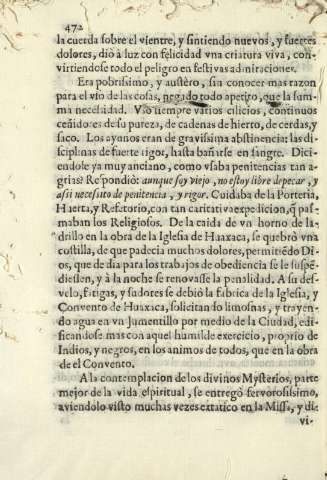 472
la cuerda sobre el vientre, y sintiendo nuevos, y fuertes
dolores, diò à luz con felicidad vna criatura viva, con-
virtiendose todo el peligro en festivas admiraciones.
Era pobrisimo, y austèro, sin conocer mas razon
para el vso de las cosas, negado todo apetito, que la sum-
ma necesidad. Vsò siempre varios cilicios, continuos
ceñidores de su pureza, de cadenas de hierro, de cerdas, y
saco. Los ayunos eran de gravissima abstinencia: las di-
ciplinas de fuerte rigor, hasta bañarse en sangre. Dici-
endole ya muy anciano, como vsaba penitencias tan
agrias? Respondiò: aunque soy viejo, no estoy libre de pecar, y
assi necesito de penitencia, y rigor. Cuidaba de la Porteria,
Huerta, y Refetorio, con tan caritativa expedicion, q̃ pas-
maban los Religiosos. De la caida de vn horno de la-
drillo en la obra de la Iglesia de Huaxaca, se quebrò vna
costilla, de que padecia muchos dolores, permitiendo Di-
os, que de dia para los trabajos de obediencia se le suspẽ-
diessen, y à la noche se renovasse la penalidad. A su des-
velo, fatigas, y sudores se debiò la fabrica de la Iglesia, y
Convento de Huaxica, solicitando limosnas, y trayen-
do agua en vn Jumentillo por medio de la Ciudad, edi-
ficandose mas con aquel humilde exercicio, proprio de
Indios, y negros, en los animos de todos, que en la obra
de el Convento.
A la contemplacion de los divinos Mysterios, parte
mejor de la vida espiritual, se entregò fervorosissimo,
aviendolo visto muchas vezes extatico en la Missa, y di-
vi-